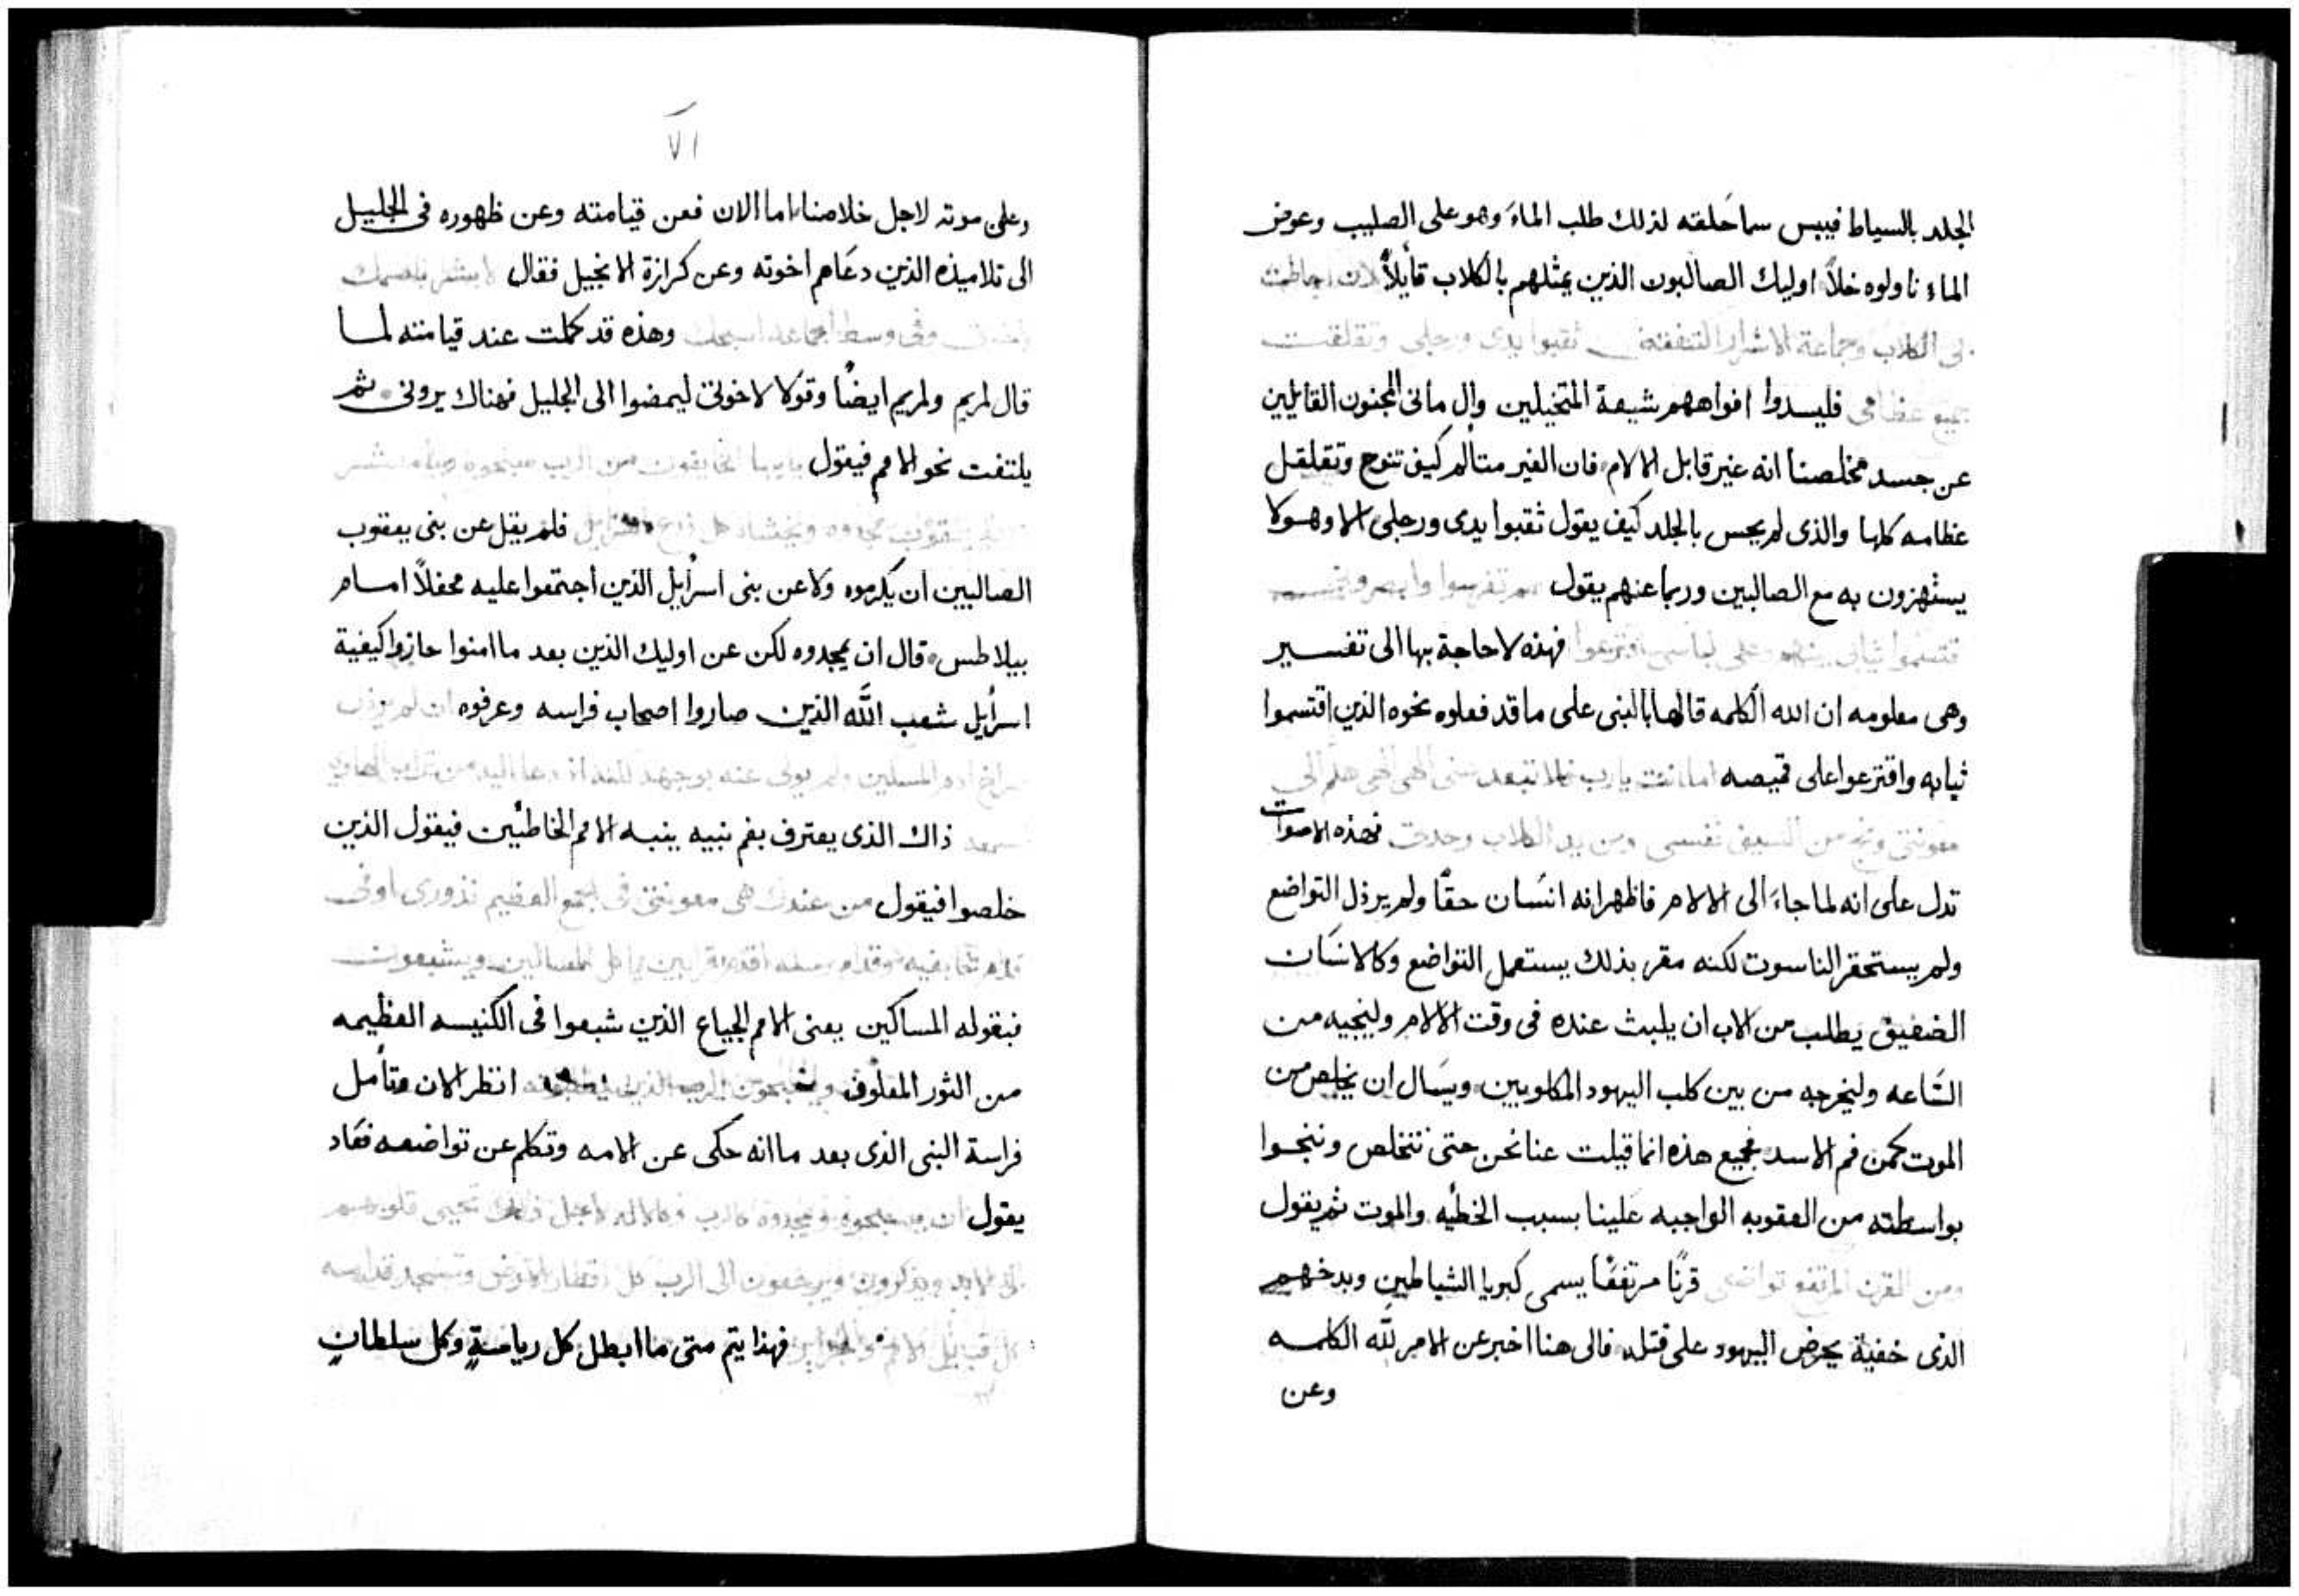 الجلد بالسياط فيبس سما حَلقه لذلك طلب الماءَ وهو على الصليب وعوض
الماء ناولوه خلاً اوليك الصالبون الذين يمثلهم بالكلاب قأيلاً لان احاطت
بى الكلاب وجماعة الاشرار اكتنفتنى ثقبوا يدى ورجلى وتقلقلت
جميع عظامى فليسدوا افواههم شيعة المتخيلين وال مانى المجنون القايلين
عن جسد مخلصنا انه غير قابل الالام فان الغير متألم كيف تنوح وتقلقل
عظامه كلها والذى لم يحس بالجلد كيف يقول ثقبوا يدى ورجلى الا وهولا
يستهزون به مع الصالبين وربما عنهم يقول هم تفرسوا وابصرونى
قتسموا ثيابى بينهم وعلى لباسى اقترعوا فهذه لا حاجة بها الى تفسير
وهى معلومه ان الله الكلمه قالها بالنبى على ما قد فعلوه نحوه الذين اقتسموا
ثيابه واقترعوا على قميصه اما انت يارب فلا تبعد عنى الهى الهى هلم الى
معونتى ونج من السيف نفسى ومن يد الكلاب وحدتى فهذه الاصوات
تدل على انه لما جاءَ الى الالام فاظهر انه انسَان حقًا ولم يرذل التواضع
ولم يستحقر الناسوت لكنه مقر بذلك يستعمل التواضع وكالانسَان
الضعيف يطلب من الاب ان يلبث عنده فى وقت الالام ولينجيه من
السَّاعه وليخرجه من بين كلب اليهود المكلوبين ويسَال ان يخلص من
الموت كمن فم الاسد فجميع هذه انما قيلت عنا نحن حتى نتخلص وننجوا
بواسطته من العقوبه الواجبه علينا بسبب الخطيه والموت ثم يقول
ومن القرن المرتفع تواضعى قرنًا مرتفعًا يسمى كبريا الشياطين وبدخهم
الذى خفية يحرض اليهود على قتله فالى هنا اخبر عن الام لله الكلمه
وعن
٧١
وعلى موته لاجل خلاصنا اما الان فعن قيامته وعن ظهوره فى الجليل
الى تلاميذه الذين دعَاهم اخوته وعن كرازة الانجيل فقال لابشر باسمك
اخوتى وفى وسط الجماعه اسبحك وهذه قد كملت عند قيامته لما
قال لمريم ولمريم ايضًا وقولا لاخوتى ليمضوا الى الجليل فهناك يرونى ثم
يلتفت نحو الامم فيقول
فلم يقل عن بنى يعقوب
الصالبين ان يكرموه ولا عن بنى اسرأيل الذين اجتمعوا عليه محفلاً امام
بيلاطس قال ان يمجدوه لكن عن اوليك الذين بعد ما امنوا حازوا كيفية
اسرأيل شعب اللّه الذين صاروا اصحاب فراسه وعرفوه ان لم يرذل
ولم يولى عنه بوجهه
ذاك الذى يعترف بفم نبيه ينبه الامم الخاطئين فيقول الذين
خلصوا فيقول من عندك هى معونتى فى الجمع العظيم نذورى اوفى
المساكين ويشبعون
فبقوله المساكين يعنى الامم الجياع الذين شبعوا فى الكنيسه العظيمه
من الثور المعلوف ويسبحون الرب الذين انظر الان وتأمل
فراسة النبى الذى بعد ما انه حكى عن الامه وتكلم عن تواضعه فعَاد
يقول ان يسبحوه ويمجدوه كالرب وكالاله لاجل ذلك تحيى قلوبهم
الى الابد ويذكرون ويرجعون الى الرب كل اقطار الارض وتسجد قدامه
كل قبايل الامم فهذا يتم متى ما ابطل كل رياسةٍ وكل سلطانٍ